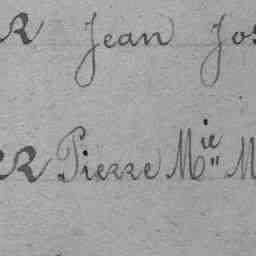 R Jean Jos
ER Pierre M^ie M